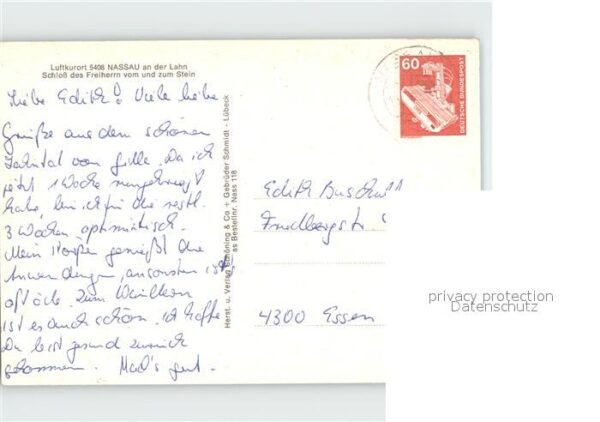 Luftkurort 5408 NASSAU an der Lahn
Schloß des Freiherrn vom und zum Stein
Liebe Edith! Viele liebe
Grüße aus dem schönen
Lahntal von Gille. Da ich
jetzt 1 Woche rumgekriegt
habe, bin ich für die restl.
3 Wochen optimistisch.
Mein Körper genießt die
Anwendungen, ansonsten ist
oft öde. Zum Wandern
ist es auch schön. Ich hoffe
Du bist gesund zurück
gekommen. Mach's gut.
Herst. u. Verlag Schöning & Co + Gebrüder Schmidt - Lübeck
as Bestellnr. Nass 118
60
DEUTSCHE BUNDESPOST
Edith
Friedbergstr.
4300 Essen
privacy protection
Datenschutz